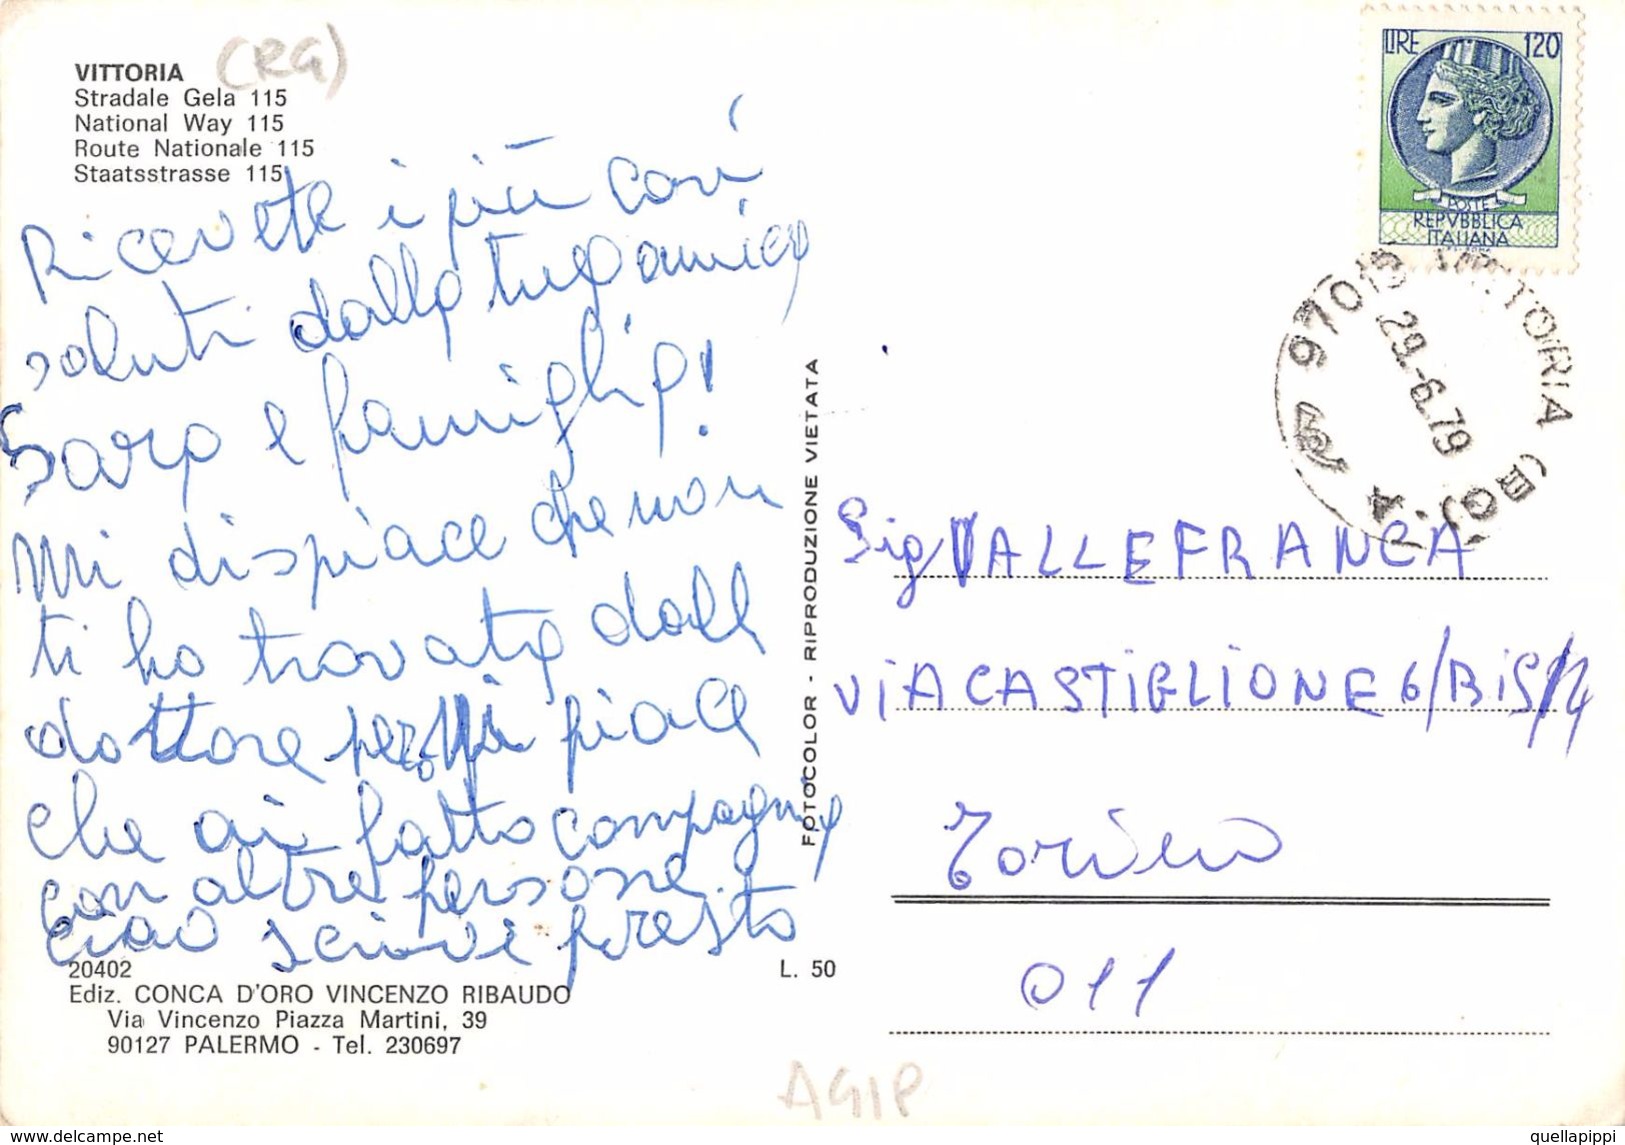 VITTORIA (RG)
Stradale Gela 115
National Way 115
Route Nationale 115
Staatsstrasse 115
Ricevete i più cari
saluti dalla tua amica
Sara e famiglia!
Mi dispiace che non
ti ho trovata dall
dottore però Mi piace
che ai fatto compagnia
con altre persone
ciao scrivi presto
20402
L. 50
Ediz. CONCA D'ORO VINCENZO RIBAUDO
Via Vincenzo Piazza Martini, 39
90127 PALERMO - Tel. 230697
FOTOCOLOR - RIPRODUZIONE VIETATA
LIRE 120
POSTE
REPVBBLICA
ITALIANA
97019 VITTORIA (RG)
29.-6.79
Sig VALLEFRANCA
ViA CASTiGLIONE 6/BiS/4
Torino
011
AGIP
quellapippi